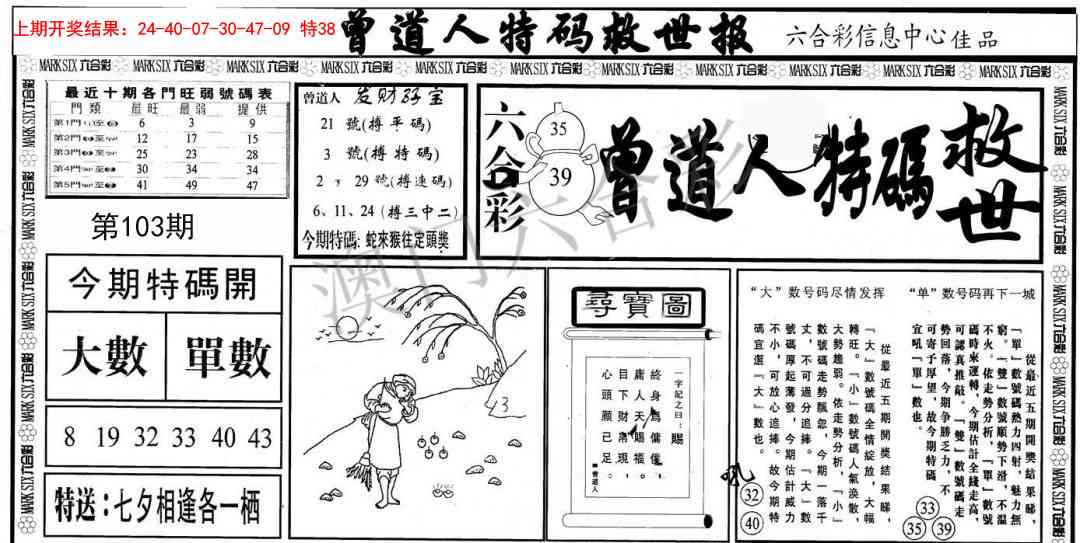 上期开奖结果：24-40-07-30-47-09 特38
曾道人特码救世报
六合彩信息中心佳品
MARK SIX 六合彩 MARK SIX 六合彩 MARK SIX 六合彩 MARK SIX 六合彩 MARK SIX 六合彩 MARK SIX 六合彩 MARK SIX 六合彩 MARK SIX 六合彩 MARK SIX 六合彩 MARK SIX 六合彩 MARK SIX 六合彩
最近十期各門旺弱號碼表
門類 最旺 最弱 提供
第1門 6 3 9
第2門 12 17 15
第3門 25 23 28
第4門 30 34 34
第5門 41 49 47
第103期
今期特碼開
大數 單數
8 19 32 33 40 43
特送：七夕相逢各一栖
曾道人 发财孖宝
21 號(搏平碼)
3 號(搏特碼)
2 29 號(搏連碼)
6、11、24(搏三中二)
今期特碼：蛇來猴往定頭獎
六合彩
35
39
曾道人特碼救世
澳门六合彩
3
尋寶圖
一字記之曰：賜
終身爲傭僅，
庸人天賜福。
目下財帛現，
心頭願已足。
■曾道人
“大”数号码尽情发挥
從最近五期開獎結果睇，
「大」數號碼全情綻放，大幅
轉旺。「小」數號碼人氣渙散，
大勢趨弱。依走勢分析，「小」
數號碼走勢飄忽，今期一落千
丈，不可過分追捧。「大」數
號碼厚起薄發，今期估計威力
不小，可放心追捧。故今期特
碼宜選『大』數也。
吼
32
40
“单”数号码再下一城
從最近五期開獎結果睇，
「單」數號碼熱力四射，魅力無
窮。「雙」數號順勢下滑，不溫
不火。依走勢分析，「單」數號
碼時來運轉，今期估計全綫走高，
可認真推敲。「雙」數號碼走
勢回落，今期爭勝乏力，不
可寄予厚望，故今期特碼
宜吼『單』數也。
33
35
39